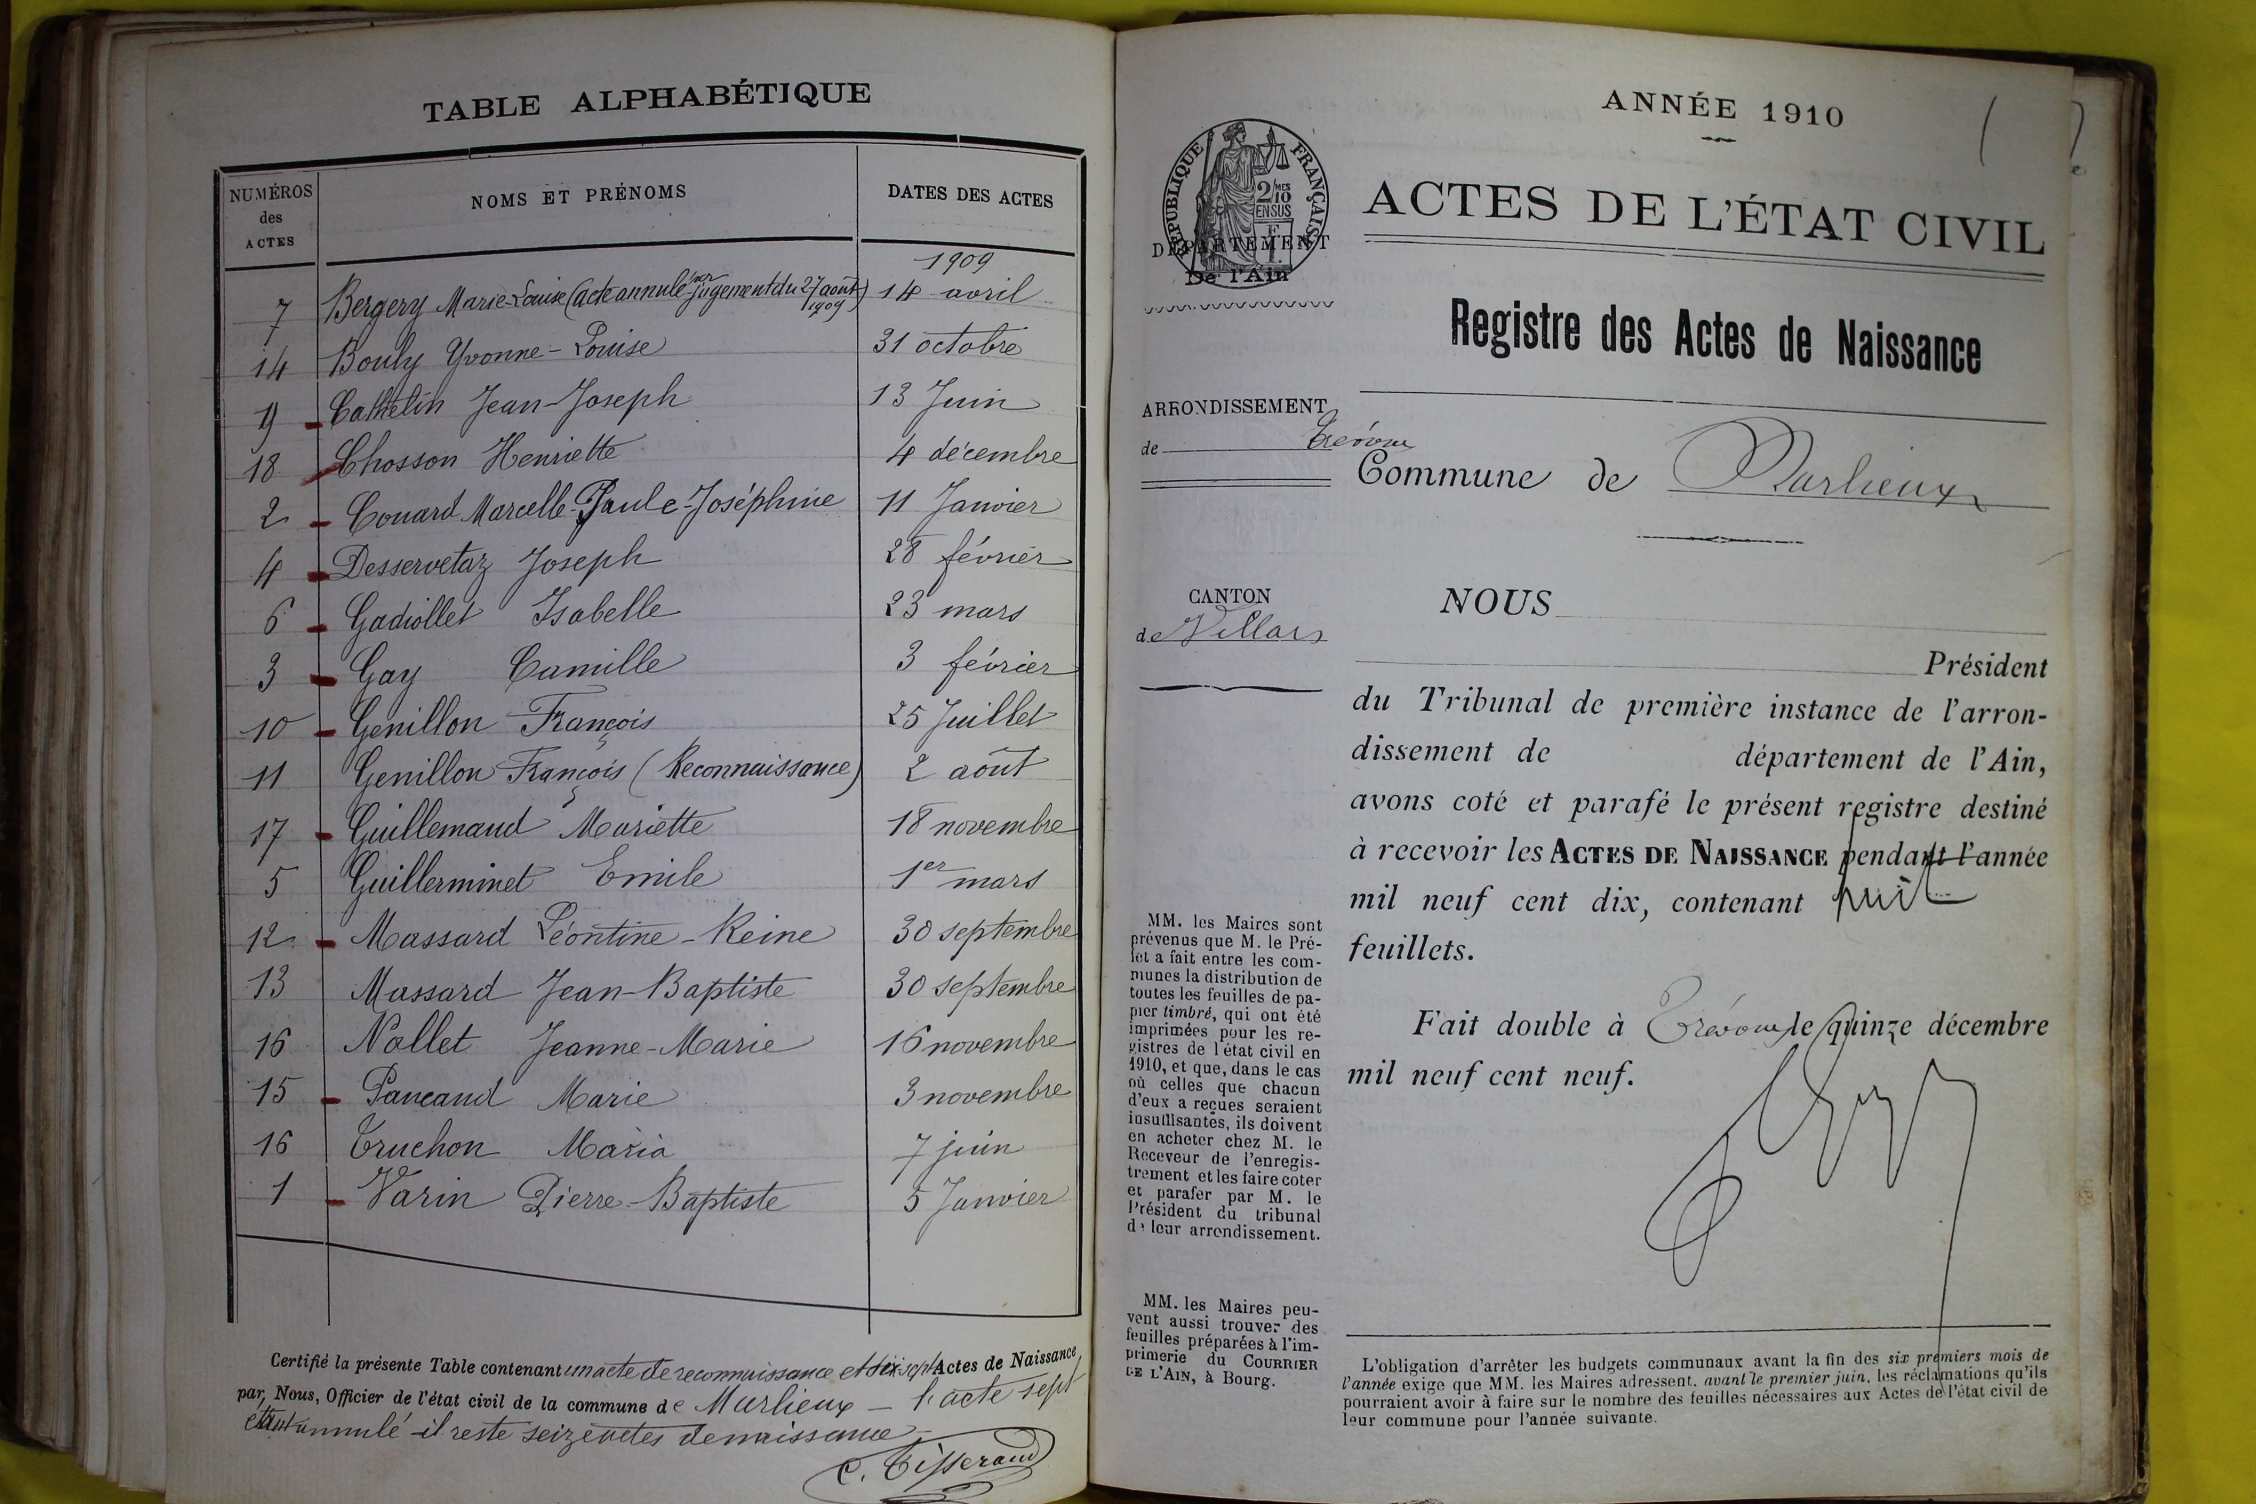 TABLE ALPHABÉTIQUE
NUMÉROS des ACTES
NOMS ET PRÉNOMS
DATES DES ACTES
1909
7 Bergery Marie-Louise (acte annulé par jugement du 27 août 1909) 14 avril
14 Bouly Yvonne-Louise 31 octobre
9 Cathelin Jean-Joseph 13 Juin
18 Chosson Henriette 4 décembre
2 Couard Marcelle-Paule-Joséphine 11 Janvier
4 Desservetaz Joseph 28 février
6 Gadiollet Isabelle 23 mars
3 Gay Camille 3 février
10 Genillon François 25 Juillet
11 Genillon François (Reconnaissance) 2 août
17 Guillemaud Mariette 18 novembre
5 Guillerminet Emile 1er mars
12 Massard Léontine-Reine 30 septembre
13 Massard Jean-Baptiste 30 septembre
16 Nallet Jeanne-Marie 16 novembre
15 Pancaud Marie 3 novembre
16 Truchon Maria 7 juin
1 Varin Pierre-Baptiste 5 Janvier
Certifié la présente Table contenant un acte de reconnaissance et dix-sept Actes de Naissance
par Nous, Officier de l'état civil de la commune de Marlieux – l'acte sept
étant annulé il reste seize actes de naissance
C. Tisserand
ANNÉE 1910
RÉPUBLIQUE FRANÇAISE
2/10 MES
EN SUS
DÉPARTEMENT
De l'Ain
ACTES DE L'ÉTAT CIVIL
Registre des Actes de Naissance
ARRONDISSEMENT
de Trévoux
Commune de Marlieux
CANTON
de Villars
NOUS
Président
du Tribunal de première instance de l'arron-
dissement de département de l'Ain,
avons coté et parafé le présent registre destiné
à recevoir les ACTES DE NAISSANCE pendant l'année
mil neuf cent dix, contenant huit
feuillets.
Fait double à Trévoux, le quinze décembre
mil neuf cent neuf.
MM. les Maires sont
prévenus que M. le Pré-
fet a fait entre les com-
munes la distribution de
toutes les feuilles de pa-
pier timbré, qui ont été
imprimées pour les re-
gistres de l'état civil en
1910, et que, dans le cas
où celles que chacun
d'eux a reçues seraient
insuffisantes, ils doivent
en acheter chez M. le
Receveur de l'enregis-
trement et les faire coter
et parafer par M. le
Président du tribunal
de leur arrondissement.
MM. les Maires peu-
vent aussi trouver des
feuilles préparées à l'im-
primerie du COURRIER
DE L'AIN, à Bourg.
L'obligation d'arrêter les budgets communaux avant la fin des six premiers mois de
l'année exige que MM. les Maires adressent, avant le premier juin, les réclamations qu'ils
pourraient avoir à faire sur le nombre des feuilles nécessaires aux Actes de l'état civil de
leur commune pour l'année suivante.